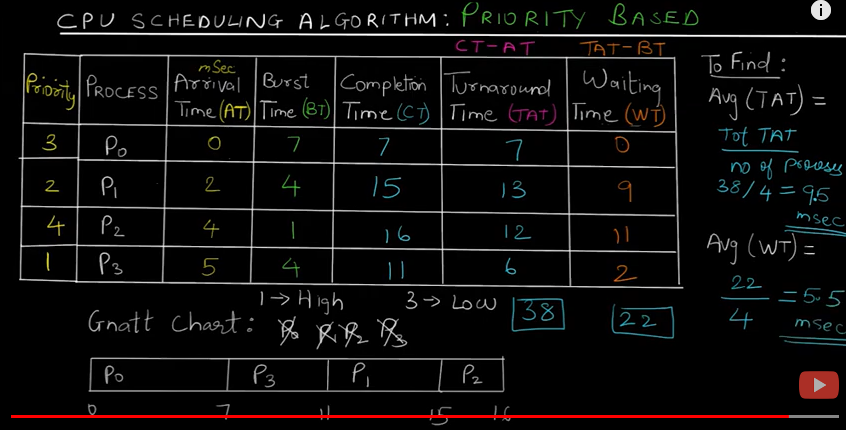 CPU SCHEDULING ALGORITHM: PRIORITY BASED
CT-AT TAT-BT
Priority PROCESS mSec Arrival Time (AT) Burst Time (BT) Completion Time (CT) Turnaround Time (TAT) Waiting Time (WT)
3 P0 0 7 7 7 0
2 P1 2 4 15 13 9
4 P2 4 1 16 12 11
1 P3 5 4 11 6 2
1 → High 3 → Low 38 22
Gnatt Chart: P0 P1 P2 P3
P0 P3 P1 P2
0 7 11 15 16
To Find:
Avg (TAT) =
Tot TAT
no of processes
38/4 = 9.5
msec
Avg (WT) =
22
4
= 5.5
msec